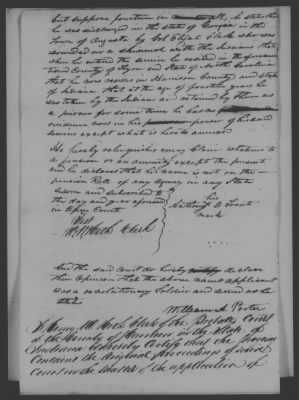 but suppose fourteen in all, he states that
he was discharged in the state of Georgia in the
Town of Augusta by Col Elijah Clark who was
wounded in a skirmish with the Indians that
when he entered the service he resided in the aforemen
tioned County of and State of North Carolina
that he now resides in Harrison County and state
of Indiana that at the age of fourteen years he
was taken by the Indians and retained by them as
a prisoner for some time he has no
evidence now in his power of his said
service except what is hereto annexed
He hereby relinquishes every Claim whatever to
a pension or an annuity except the present
and he declares that his name is not on the
pension Roll of any agency in any State
Sworn and subscribed to
the day and year aforesaid
in Open Court
his
Mark
Attest
Clerk
And the said Court do hereby declare
their opinion that the above named applicant
was a revolutionary Soldier and served as he
states
William A. Porter
I Henry W. Heth Clerk of the Probate Court
of the County of Harrison in the State of
Indiana do hereby Certify that the foregoing
Contains the original proceedings of said
Court in the Matter of the application of